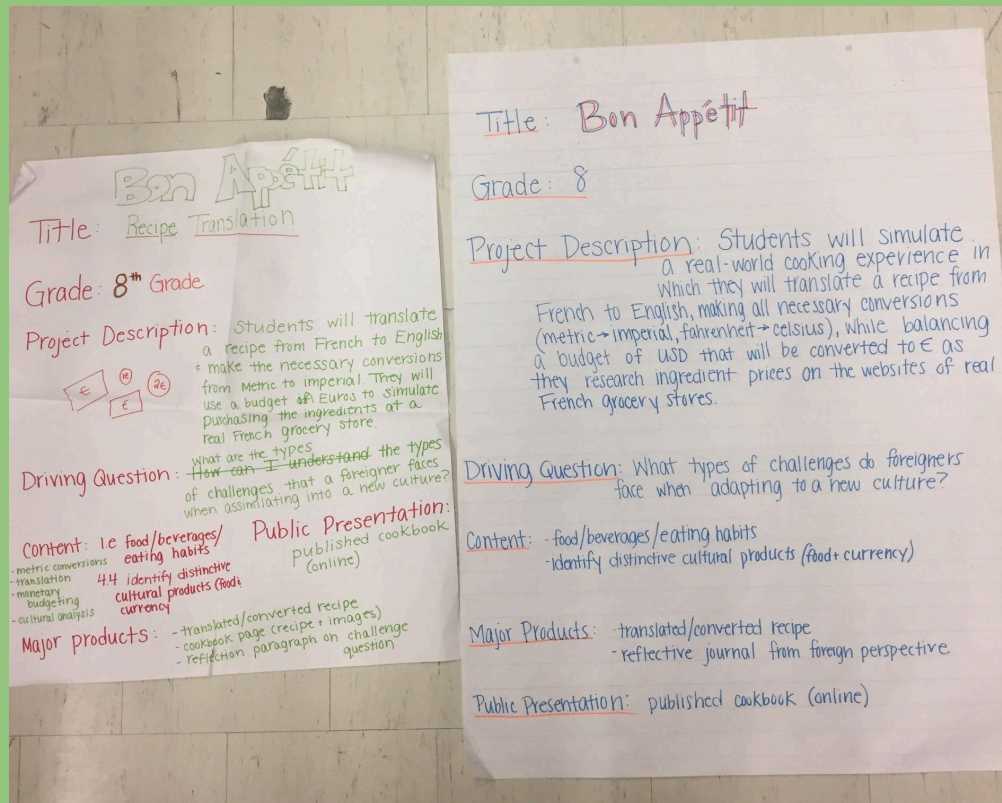 Bon Appétit
Title: Recipe Translation
Grade: 8th Grade
Project Description: Students will translate
a recipe from French to English
& make the necessary conversions
from Metric to imperial. They will
use a budget of Euros to simulate
purchasing the ingredients at a
real French grocery store.
€
1€
2€
€
What are the types
Driving Question: How can I understand the types
of challenges that a foreigner faces
when assimilating into a new culture?
Content: 1.e food/beverages/
eating habits
- metric conversions
- translation
- monetary
budgeting
- cultural analysis
4.4 identify distinctive
cultural products (food &
currency
Public Presentation:
published cookbook
(online)
Major products: - translated/converted recipe
- cookbook page (recipe + images)
- reflection paragraph on challenge
question
Title: Bon Appétit
Grade: 8
Project Description: Students will simulate
a real-world cooking experience in
which they will translate a recipe from
French to English, making all necessary conversions
(metric→imperial, fahrenheit→celsius), while balancing
a budget of USD that will be converted to € as
they research ingredient prices on the websites of real
French grocery stores.
Driving Question: What types of challenges do foreigners
face when adapting to a new culture?
Content: - food/beverages/eating habits
- identify distinctive cultural products (food + currency)
Major Products: - translated/converted recipe
- reflective journal from foreign perspective
Public Presentation: published cookbook (online)